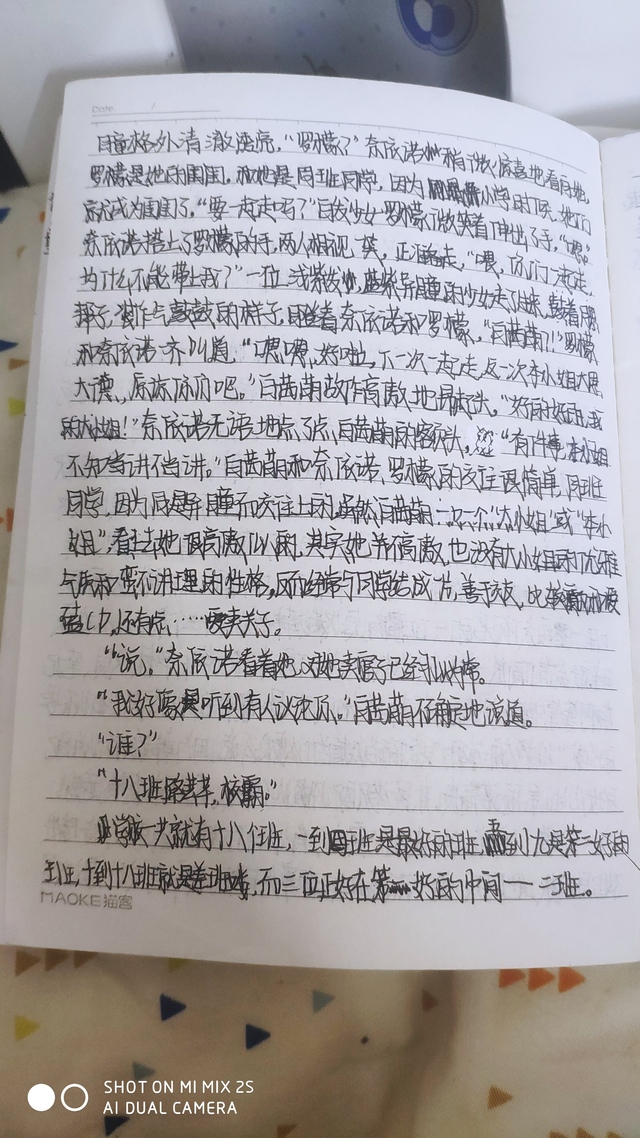 Date. /
瞳格外清澈透亮，“罗檬？”奈依诺 稍微惊喜地看向她，
罗檬是她的闺蜜，和她是同班同学，因为 小学时候，她们
就成为闺蜜了，“要一起走吗？” 少女罗檬微笑着伸出了手，“嗯。”
奈依诺搭上了罗檬的手，两人相视一笑，正 走，“喂，你们一起走，
为什么不能带上我？”一位浅紫发， 紫异瞳的少女走了出来，鼓着腮
帮子，装作气鼓鼓的样子，瞪着奈依诺和罗檬，“白茜萌？！”罗檬
和奈依诺一齐叫道，“嘿嘿，好啦，下一次一起走，这一次本小姐大人
大德，原谅你们吧。”白茜萌故作高傲地昂起头，“好的好的，我
的大小姐！”奈依诺无语地点了点白茜萌的额头， “有件事，本小姐
不知当讲不当讲。”白茜萌和奈依诺、罗檬的交往很简单，同班
同学，因为同是异瞳而交往上的，虽然白茜萌一口一个“大小姐”或“本小
姐”，看上去她很高傲似的，其实她并不高傲，也没有大小姐的优雅
气质和蛮不讲理的性格，反而经常与同学结成一片，善于交友，比较
嗑CP，还有点……爱卖关子。
“说。”奈依诺看着她，对她卖关子已经习以为常。
“我好像是听到有人议论你，”白茜萌不确定地说道。
“谁？”
“十八班 ，校霸。”
学校一共就有十八个班，一到四班是最好的班，五到九是第二好的
班，十到十八班就是差班 ，而三位正好在第 好的中间——二班。
MAOKE猫客
SHOT ON MI MIX 2S
AI DUAL CAMERA